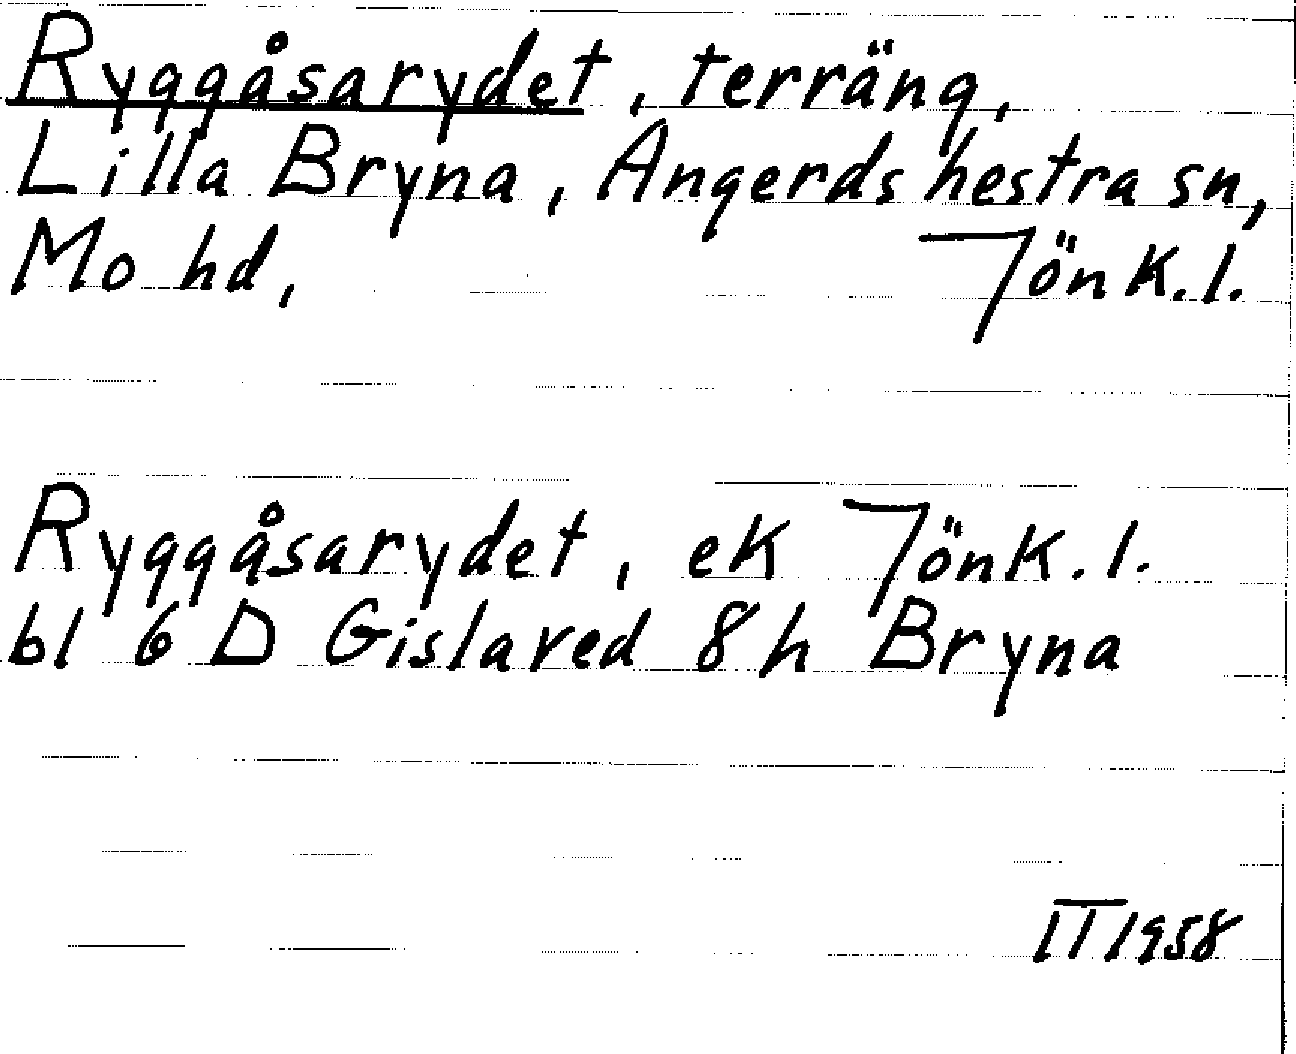 Ryggåsarydet, terräng,
Lilla Bryna, Angerdshestra sn,
Mo hd, Jönk.l.
Ryggåsarydet, ek Jönk.l.
bl 6 D Gislaved 8h Bryna
II 1958